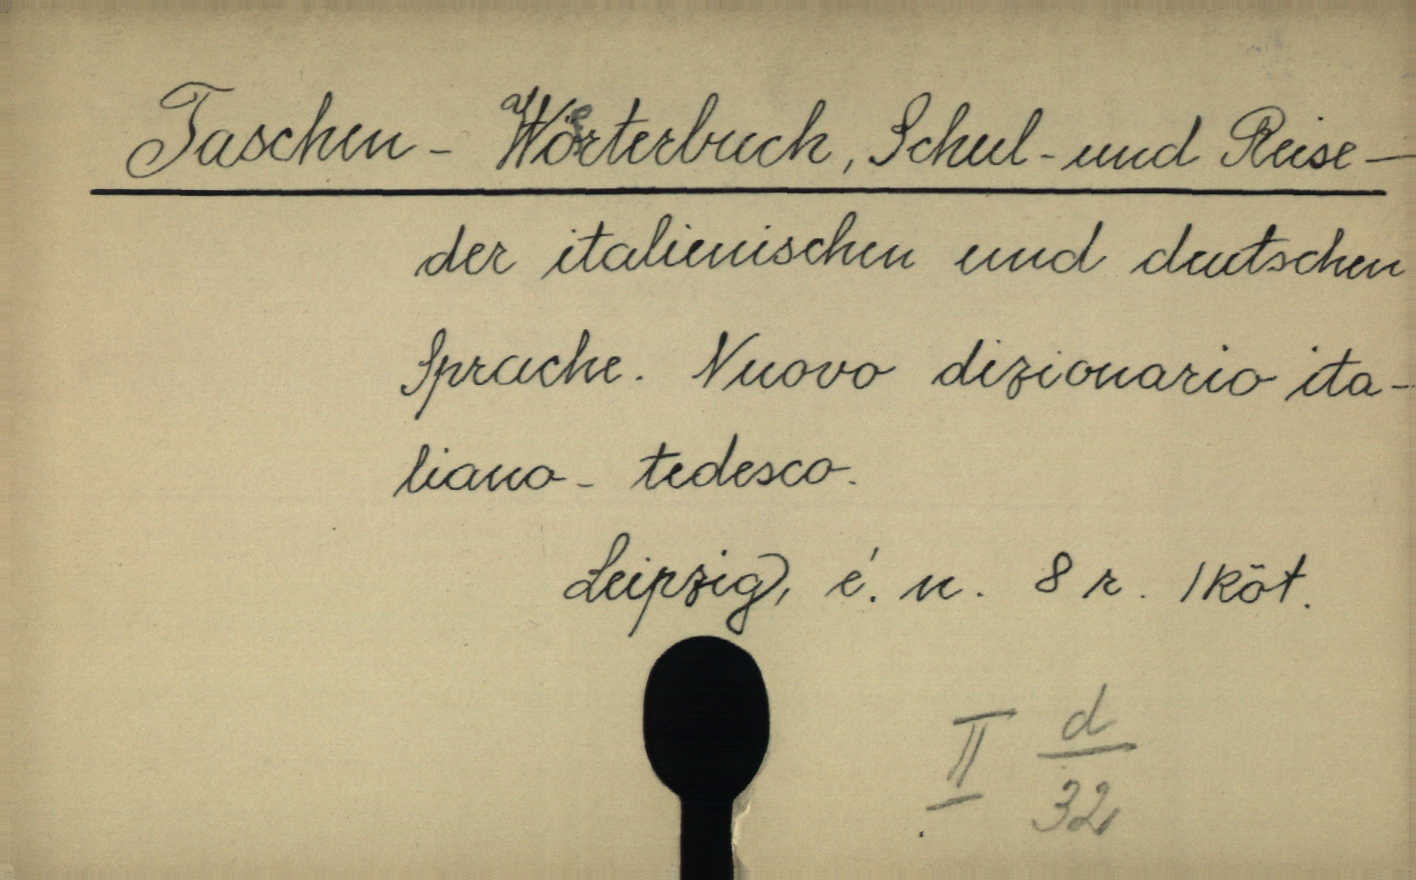 Taschen - Wörterbuch, Schul- und Reise-
der italienischen und deutschen
Sprache. Nuovo dizionario ita-
liano - tedesco.
Leipzig, é. n. 8 r. 1 köt.
II d/32